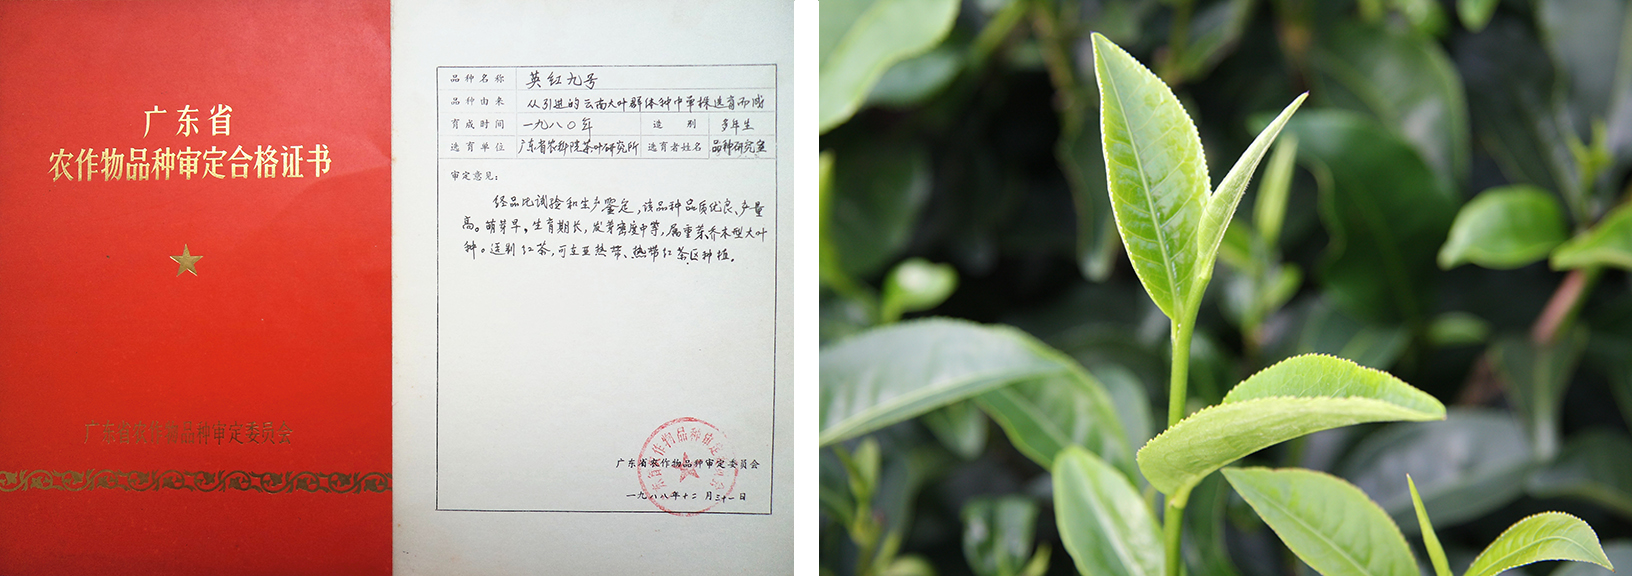 广东省
农作物品种审定合格证书
广东省农作物品种审定委员会
品种名称 英红九号
品种由来 从引进的云南大叶群体种中单株选育而成
育成时间 一九八〇年 造别 多年生
选育单位 广东省农科院茶叶研究所 选育者姓名 品种研究室
审定意见:
经品比试验和生产鉴定,该品种品质优良、产量
高。萌芽早,生育期长,发芽密度中等,属重菜乔木型大叶
种。适制红茶,可在亚热带、热带红茶区种植。
广东省农作物品种审定委员会
一九八八年十二月三十一日